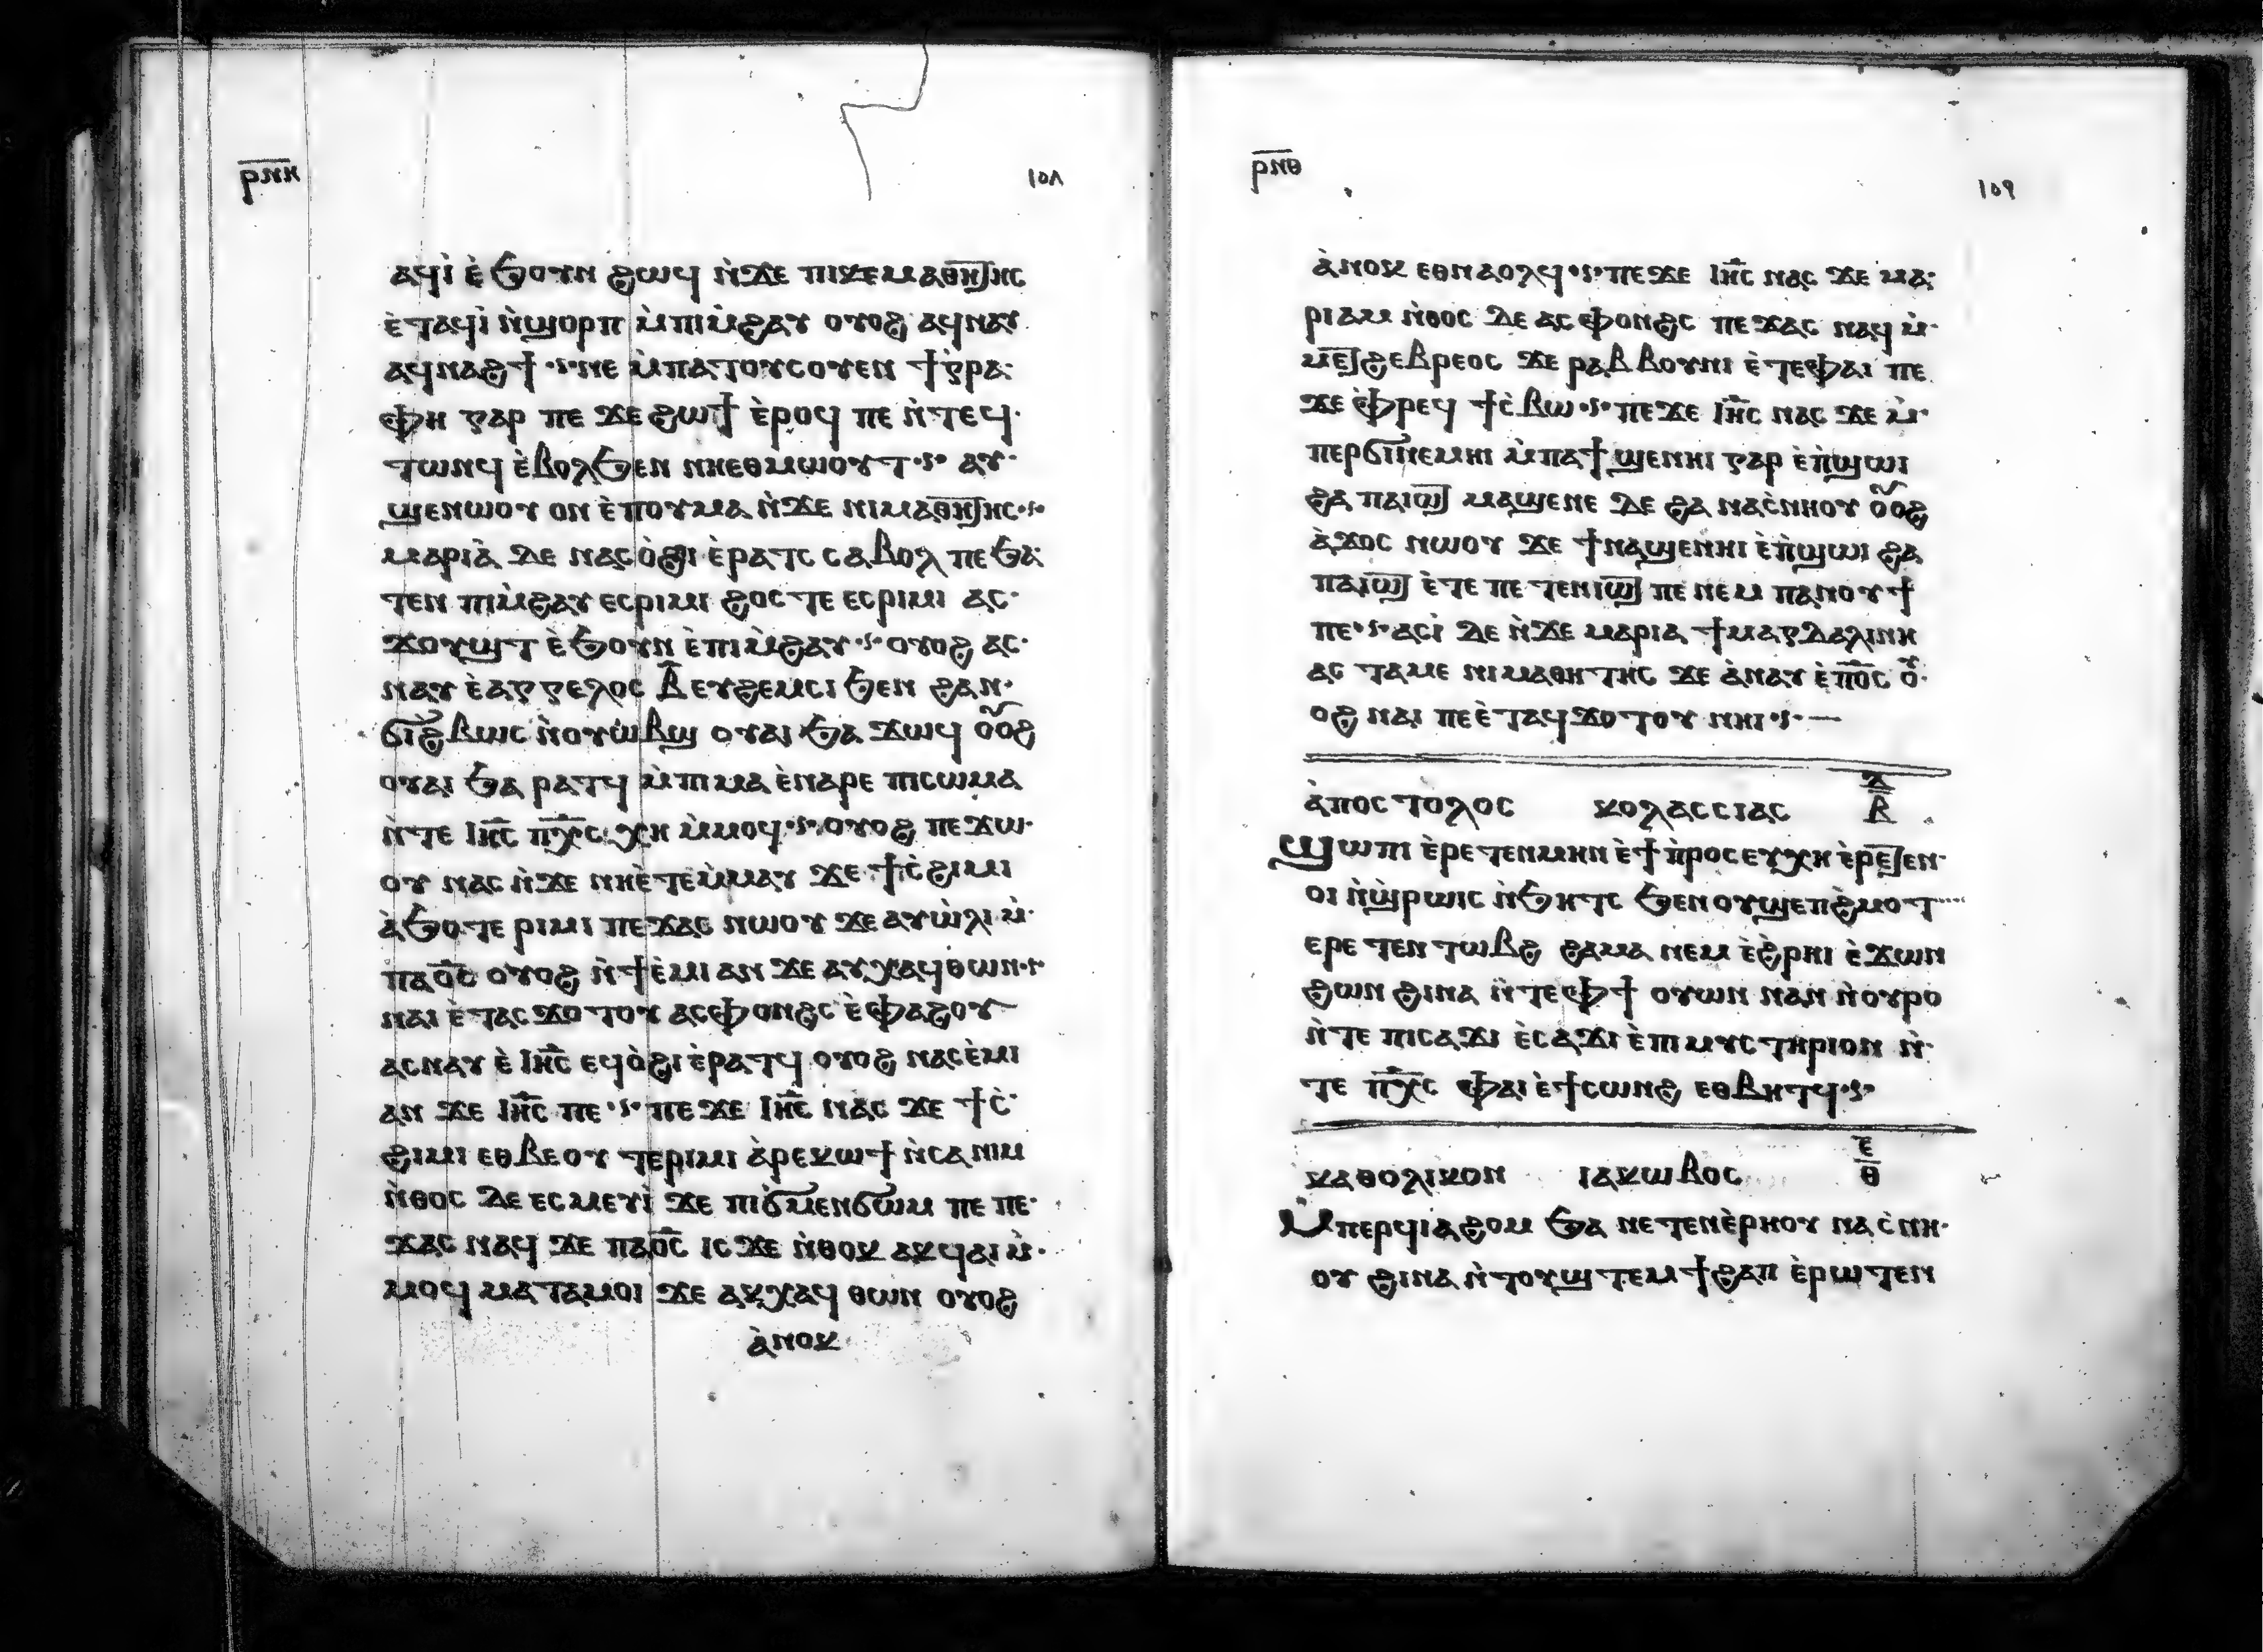 ⲣ̅ⲛ̅ⲏ̅ ١٥٨
ⲁϥⲓ̀ ⲉ̀ϧⲟⲩⲛ ϩⲱϥ ⲛ̀ϫⲉ ⲡⲓⲕⲉⲙⲁⲑⲏⲧⲏⲥ
ⲉ̀ⲧⲁϥⲓ̀ ⲛ̀ϣⲟⲣⲡ ⲙ̀ⲡⲓⲙ̀ϩⲁⲩ ⲟⲩⲟϩ ⲁϥⲛⲁⲩ
ⲁϥⲛⲁϩϯ·ⲋ·ⲛⲉ ⲙ̀ⲡⲁⲧⲟⲩⲥⲟⲩⲉⲛ ϯⲅ̀ⲣⲁ:
ⲫⲏ ⲅⲁⲣ ⲡⲉ ϫⲉ ϩⲱϯ ⲉ̀ⲣⲟϥ ⲡⲉ ⲛ̀ⲧⲉϥ·
ⲧⲱⲛϥ ⲉ̀ⲃⲟⲗϧⲉⲛ ⲛⲏⲉⲑⲙⲱⲟⲩⲧ·ⲋ· ⲁⲩ·
ϣⲉⲛⲱⲟⲩ ⲟⲛ ⲉ̀ⲡⲟⲩⲙⲁ ⲛ̀ϫⲉ ⲛⲓⲙⲁⲑⲏⲧⲏⲥ·ⲋ·
ⲙⲁⲣⲓⲁ̀ ⲇⲉ ⲛⲁⲥⲟ̀ϩⲓ ⲉ̀ⲣⲁⲧⲥ ⲥⲁⲃⲟⲗ ⲡⲉ ϧⲁ:
ⲧⲉⲛ ⲡⲓⲙ̀ϩⲁⲩ ⲉⲥⲣⲓⲙⲓ ϩⲟⲥⲧⲉ ⲉⲥⲣⲓⲙⲓ ⲁⲥ·
ϫⲟⲩϣⲧ ⲉ̀ϧⲟⲩⲛ ⲉ̀ⲡⲓⲙ̀ϩⲁⲩ·ⲋ·ⲟⲩⲟϩ ⲁⲥ·
ⲛⲁⲩ ⲉ̀ⲁⲅⲅⲉⲗⲟⲥ ⲃ̅ ⲉⲩϩⲉⲙⲥⲓ ϧⲉⲛ ϩⲁⲛ·
ϭⲓϩ̀ⲃⲱⲥ ⲛ̀ⲟⲩⲱ̀ⲃϣ ⲟⲩⲁⲓ ϧⲁ ϫⲱϥ ⲟⲟϩ
ⲟⲩⲁⲓ ϧⲁ ⲣⲁⲧϥ ⲙ̀ⲡⲓⲙⲁ ⲉ̀ⲛⲁⲣⲉ ⲡⲓⲥⲱⲙⲁ
ⲛ̀ⲧⲉ ⲓⲏ̅ⲥ̅ ⲡ̅ⲭ̅ⲥ̅ ⲭⲏ ⲙ̀ⲙⲟϥ·ⲋ·ⲟⲩⲟϩ ⲡⲉϫⲱ·
ⲟⲩ ⲛⲁⲥ ⲛ̀ϫⲉ ⲛⲏⲉ̀ⲧⲉⲙ̀ⲙⲁⲩ ϫⲉ ϯⲥ̀ϩⲓⲙⲓ
ⲁ̀ϧⲟ ⲧⲉ ⲣⲓⲙⲓ ⲡⲉϫⲁⲥ ⲛⲱⲟⲩ ϫⲉ ⲁⲩⲱ̀ⲗⲓ ⲙ̀·
ⲡⲁⲟ̅ⲥ̅ ⲟⲩⲟϩ ⲛ̀ϯⲉ̀ⲙⲓ ⲁⲛ ϫⲉ ⲁⲩⲭⲁϥ ⲑⲱⲛ·ⲋ·
ⲛⲁⲓ ⲉ̀ⲧⲁⲥϫⲟⲧⲟⲩ ⲁⲥⲫⲟⲛϩⲥ ⲉ̀ⲫⲁϩⲟⲩ
ⲁⲥⲛⲁⲩ ⲉ̀ ⲓⲏ̅ⲥ̅ ⲉϥⲟ̀ϩⲓ ⲉ̀ⲣⲁⲧϥ ⲟⲩⲟϩ ⲛⲁⲥⲉ̀ⲙⲓ
ⲁⲛ ϫⲉ ⲓⲏ̅ⲥ̅ ⲡⲉ·ⲋ·ⲡⲉϫⲉ ⲓⲏ̅ⲥ̅ ⲛⲁⲥ ϫⲉ ϯⲥ̀·
ϩⲓⲙⲓ ⲉⲑⲃⲉⲟⲩ ⲧⲉⲣⲓⲙⲓ ⲁ̀ⲣⲉⲕⲱϯ ⲛ̀ⲥⲁ ⲛⲓⲙ
ⲛ̀ⲑⲟⲥ ⲇⲉ ⲉⲥⲙⲉⲩⲓ̀ ϫⲉ ⲡⲓϭⲙⲉⲛϭⲱⲙ ⲡⲉ ⲡⲉ·
ϫⲁⲥ ⲛⲁϥ ϫⲉ ⲡⲁⲟ̅ⲥ̅ ⲓⲥϫⲉ ⲛ̀ⲑⲟⲕ ⲁⲕϥⲁⲓ ⲙ̀·
ⲙⲟϥ ⲙⲁⲧⲁⲙⲟⲓ ϫⲉ ⲁⲕⲭⲁϥ ⲑⲱⲛ ⲟⲩⲟϩ
ⲁ̀ⲛⲟⲕ
ⲣ̅ⲛ̅ⲑ̅ ١٥٩
ⲁ̀ⲛⲟⲕ ⲉⲑⲛⲁⲟⲗϥ·ⲋ·ⲡⲉϫⲉ ⲓⲏ̅ⲥ̅ ⲛⲁⲥ ϫⲉ ⲙⲁ:
ⲣⲓⲁⲙ ⲛ̀ⲑⲟⲥ ⲇⲉ ⲁⲥⲫⲟⲛϩⲥ ⲡⲉϫⲁⲥ ⲛⲁϥ ⲙ̀·
ⲙⲉⲧϩⲉⲃⲣⲉⲟⲥ ϫⲉ ⲣⲁⲃⲃⲟⲩⲛⲓ ⲉ̀ⲧⲉⲫⲁⲓ ⲡⲉ
ϫⲉ ⲫ̀ⲣⲉϥϯⲥ̀ⲃⲱ·ⲋ·ⲡⲉϫⲉ ⲓⲏ̅ⲥ̅ ⲛⲁⲥ ϫⲉ ⲙ̀·
ⲡⲉⲣϭⲓⲛⲉⲙⲏⲓ ⲙ̀ⲡⲁϯϣⲉⲛⲏⲓ ⲅⲁⲣ ⲉ̀ⲡ̀ϣⲱⲓ
ϩⲁ ⲡⲁⲓⲱⲧ ⲙⲁϣⲉⲛⲉ ⲇⲉ ϩⲁ ⲛⲁⲥ̀ⲛⲏⲟⲩ ⲟⲟϩ
ⲁ̀ϫⲟⲥ ⲛⲱⲟⲩ ϫⲉ ϯⲛⲁϣⲉⲛⲏⲓ ⲉ̀ⲡ̀ϣⲱⲓ ϩⲁ
ⲡⲁⲓⲱⲧ ⲉ̀ⲧⲉ ⲡⲉⲧⲉⲛⲓⲱⲧ ⲡⲉ ⲛⲉⲙ ⲡⲁⲛⲟⲩϯ
ⲡⲉ·ⲋ·ⲁⲥⲓ̀ ⲇⲉ ⲛ̀ϫⲉ ⲙⲁⲣⲓⲁ ϯⲙⲁⲅⲇⲁⲗⲓⲛⲏ
ⲁⲥⲧⲁⲙⲉ ⲛⲓⲙⲁⲑⲏⲧⲏⲥ ϫⲉ ⲁ̀ⲛⲁⲩ ⲉ̀ⲡⲟ̅ⲥ̅ ⲟⲩ·
ⲟϩ ⲛⲁⲓ ⲡⲉⲉ̀ⲧⲁϥϫⲟⲧⲟⲩ ⲛⲏⲓ·ⲋ·—
ⲁ̀ⲡⲟⲥⲧⲟⲗⲟⲥ ⲕⲟⲗⲁⲥⲥⲓⲁⲥ ⲇ̅ ⲃ̅
ϣⲱⲡⲓ ⲉ̀ⲣⲉⲧⲉⲛⲙⲏⲛ ⲉ̀ϯⲡ̀ⲣⲟⲥⲉⲩⲭⲏ ⲉ̀ⲣⲉⲧⲉⲛ·
ⲟⲓ ⲛ̀ϣ̀ⲣⲱⲓⲥ ⲛ̀ϧⲏⲧⲥ ϧⲉⲛ ⲟⲩϣⲉⲡϩ̀ⲙⲟⲧ
ⲉⲣⲉⲧⲉⲛⲧⲱⲃϩ ϩⲁⲙⲁ ⲛⲉⲙ ⲉ̀ϩ̀ⲣⲏⲓ ⲉ̀ϫⲱⲛ
ϩⲱⲛ ϩⲓⲛⲁ ⲛ̀ⲧⲉⲫϯ ⲟⲩⲱⲛ ⲛⲁⲛ ⲛ̀ⲟⲩⲣⲟ
ⲛ̀ⲧⲉ ⲡⲓⲥⲁϫⲓ ⲉ̀ⲥⲁϫⲓ ⲉ̀ⲡⲓⲙⲩⲥⲧⲏⲣⲓⲟⲛ ⲛ̀·
ⲧⲉ ⲡ̅ⲭ̅ⲥ̅ ⲫⲁⲓ ⲉ̀ϯⲥⲱⲛϩ ⲉⲑⲃⲏⲧϥ·ⲋ·
ⲕⲁⲑⲟⲗⲓⲕⲟⲛ ⲓⲁⲕⲱⲃⲟⲥ ⲉ̅ ⲑ̅
ⲙⲡⲉⲣϥⲓⲁϩⲟⲙ ϧⲁ ⲛⲉⲧⲉⲛⲉ̀ⲣⲏⲟⲩ ⲛⲁⲥ̀ⲛⲏ·
ⲟⲩ ϩⲓⲛⲁ ⲛ̀ⲧⲟⲩϣⲧⲉⲙϯϩⲁⲡ ⲉ̀ⲣⲱⲧⲉⲛ